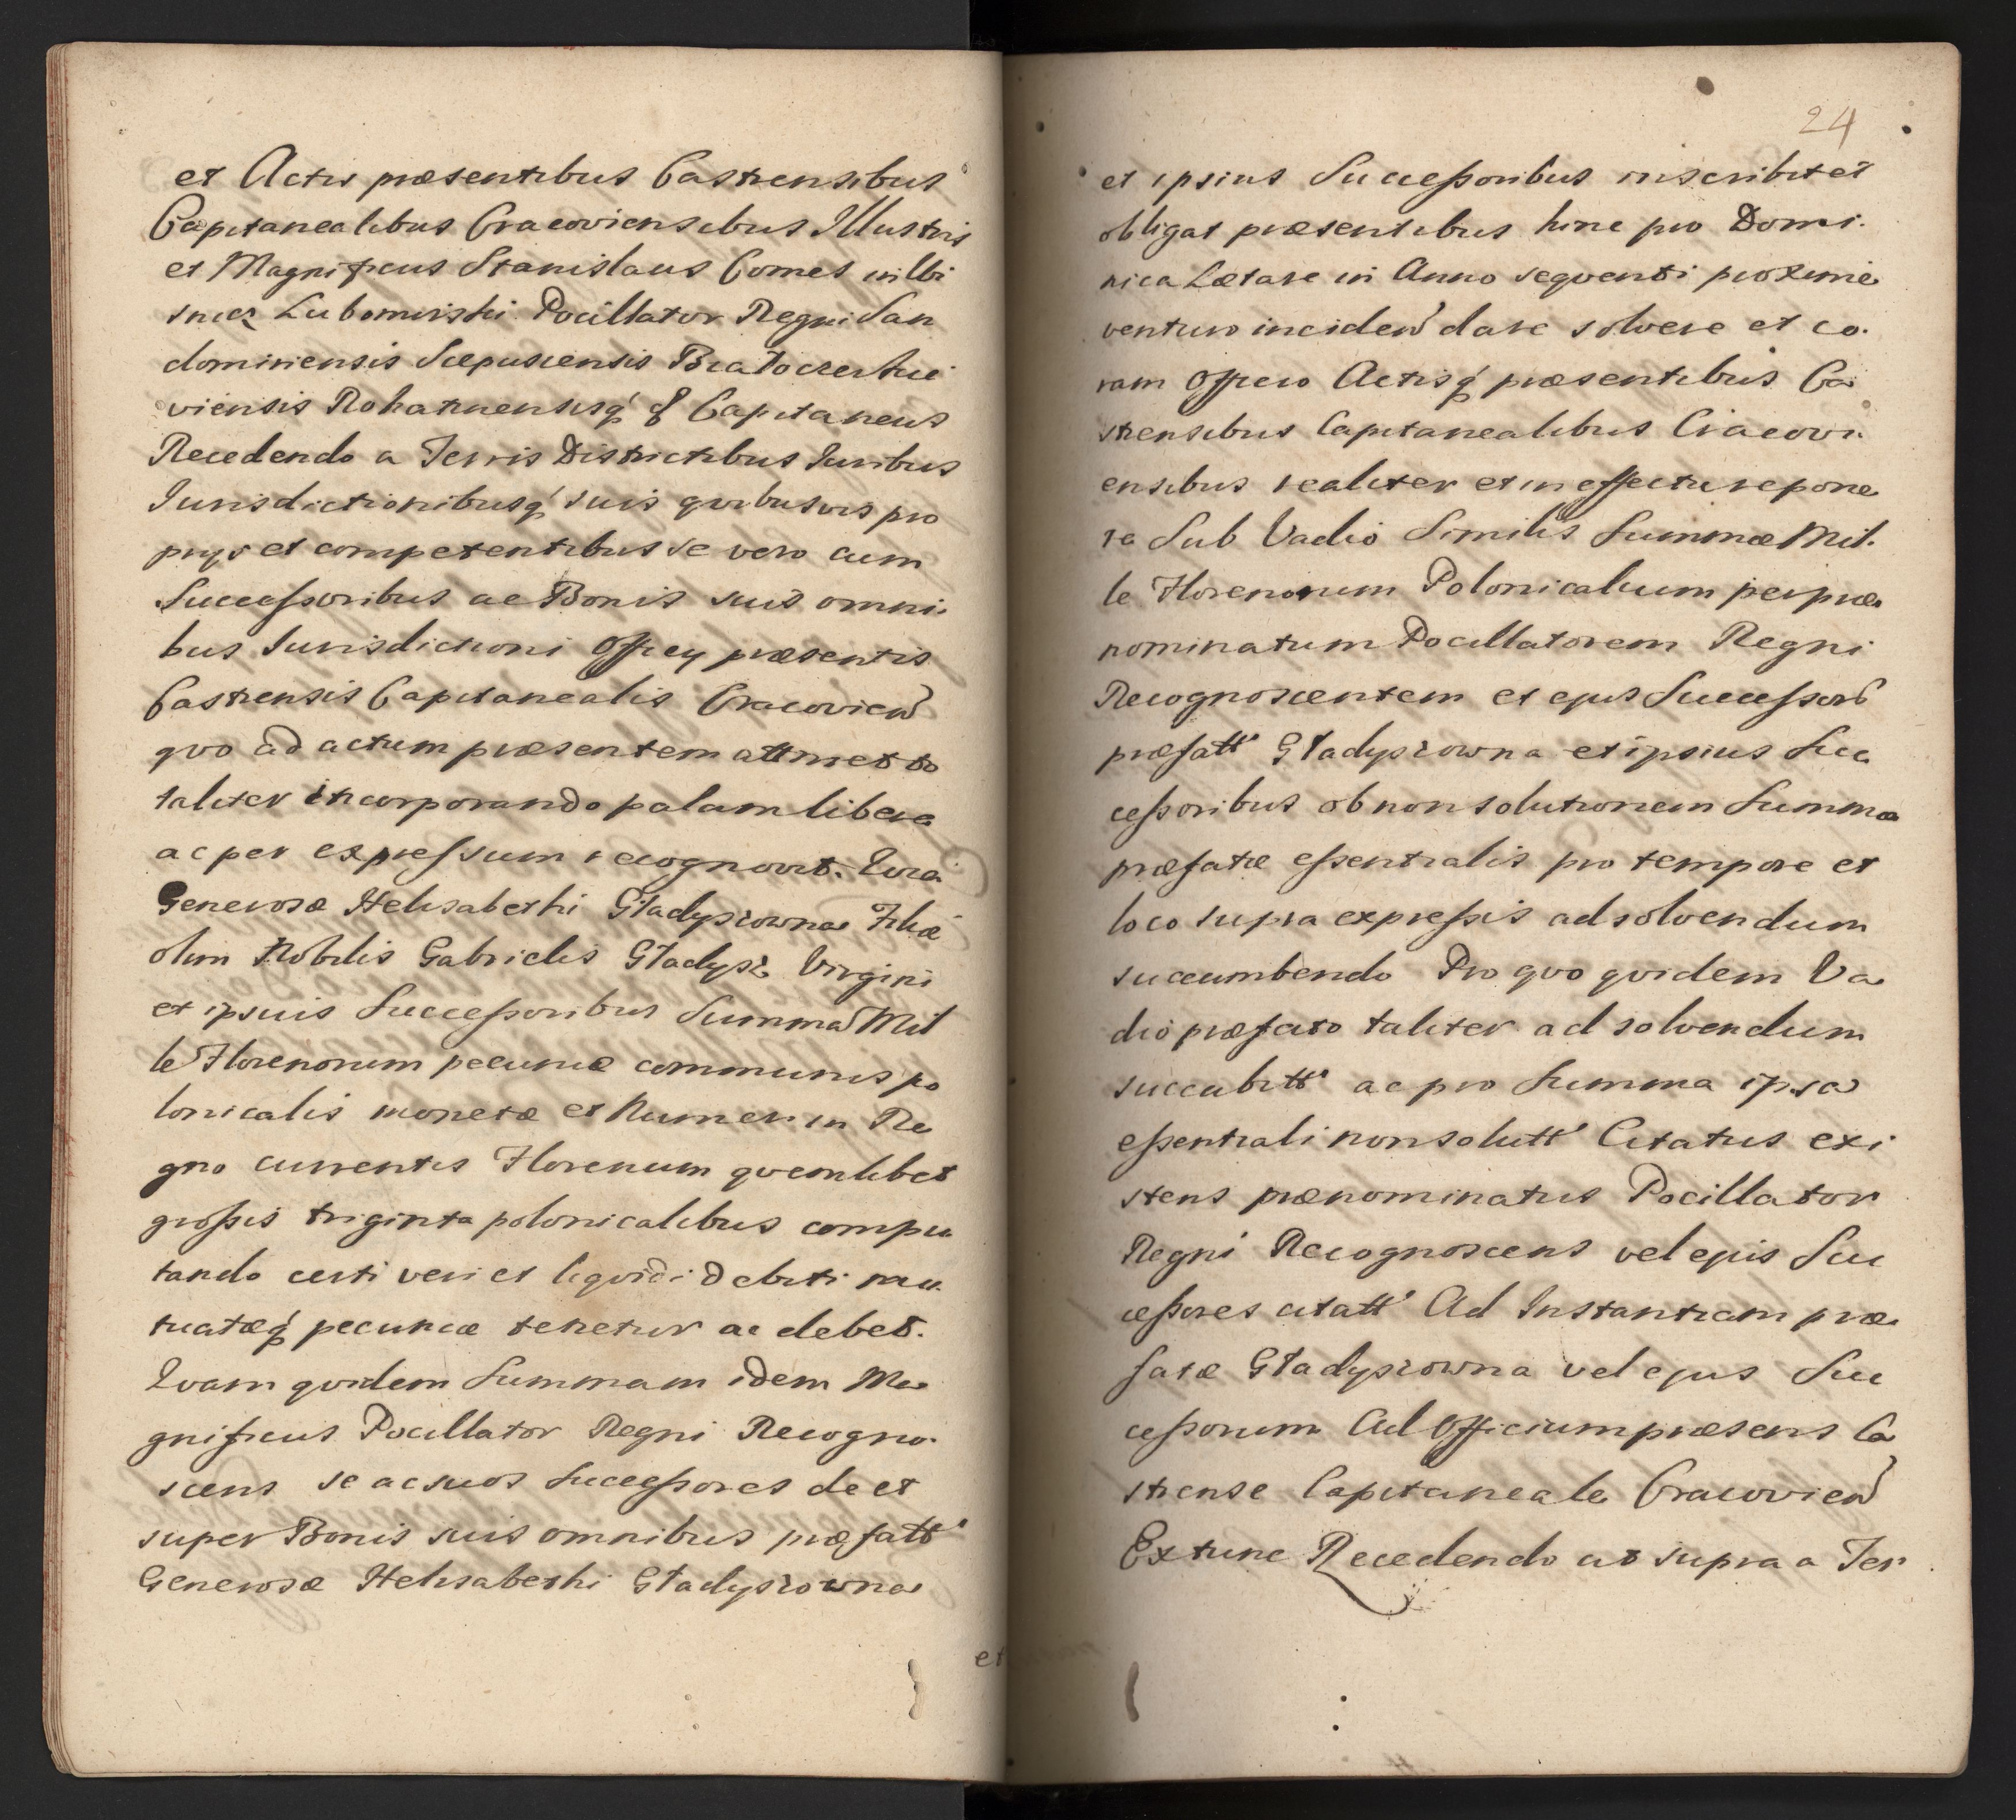 et Actis præsentibus Castrensibus
Capitanealibus Cracoviensibus Illustris
et Magnificus Stanislaus Comes in Wi
snicz Lubomirski Pocillator Regni San
domiriensis Scepusiensis
viensis Rohatinensisq́ & Capitaneus
Recedendo a Terris Districtibus Iuribus
Iurisdictionibusq́ suis qvibusvis pro
prijs et competentibus se vero cum
Successoribus ac Bonis suis omni-
bus Iurisdictioni Officij præsentis
Castrensis Capitanealis Cracovien
qvo ad actum præsentem attinet to
taliter incorporando palam libere
ac per expressum recognovit. Qvia
Generosæ Helisabethi Gładyszowna Filiæ
olim Nobilis Gabrielis Gładysz Virgini
et ipsius Successoribus Summa Mil
le Florenorum pecuniæ communis po
lonicalis monetæ et Numeri in Re
gno currentis Florenum qvemlibet
grossis triginta polonicalibus compu
tando certi veri et liqvidi Debiti mu-
tuatæq́ pecuniæ tenetur ac debet.
Qvam qvidem Summam idem Ma
gnificus Pocillator Regni Recogno-
scens se ac suos Successores de et
super Bonis suis omnibus præfatt
Generosæ Helisabethi Gładyszowna
et
24
et ipsius Successoribus inscribit et
obligat præsentibus hinc pro Domi-
nica Lætare in Anno seqventi proxime
venturo inciden dare solvere et co-
ram Officio Actisq́ præsentibus Ca
strensibus Capitanealibus Cracovi-
ensibus realiter et in effectu repone
re Sub Vadio Similis Summæ Mil-
le Florenorum Polonicalium per præ
nominatum Pocillatorem Regni
Recognoscentem et ejus Successor
præfatt Gładyszowna et ipsius Suc
cessoribus ob non solutionem Summæ
præfatæ essentialis pro tempore et
loco supra expressis ad solvendum
succumbendo Pro qvo qvidem Va
dio præfato taliter ad solvendum
succubitt ac pro Summa ipsa
essentiali non solutt Citatus exi
stens prænominatus Pocillator
Regni Recognoscens vel ejus Suc
cessores citatt Ad Instantiam præ
fatæ Gładyszowna vel ejus Suc
cessorum Ad Officium præsens Ca
strense Capitaneale Cracovien
Extunc Recedendo ut supra a Ter